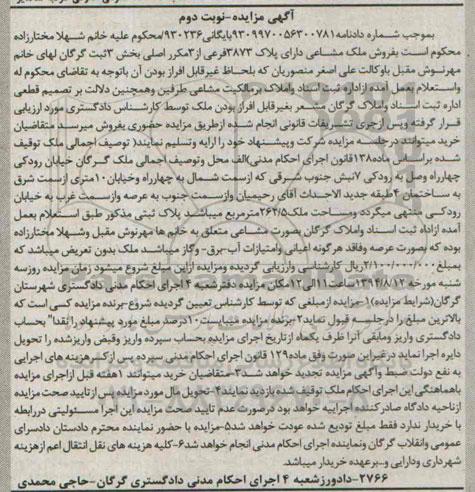 آگهی مزایده-نوبت دوم
بموجب شماره دادنامه ۹۳۰۹۹۷۰۰۵۶۳۰۰۷۸۱بایگانی۹۳۰۲۳۶/محکوم علیه خانم شهلا مختارزاده
محکوم است بفروش ملک مشاعی دارای پلاک ۳۸۷۳فرعی از۳مکرر اصلی بخش ۳ثبت گرگان لهای خانم
مهرنوش مقبل باوکالت علی اصغر منصوریان که بلحاظ غیرقابل افراز بودن آن باتوجه به تقاضای محکوم له
واستعلام بعمل آمده ازاداره ثبت اسناد واملاک برمالکیت مشاعی طرفین وهمچنین دلالت بر تصمیم قطعی
اداره ثبت اسناد واملاک گرگان مشعر بغیرقابل افراز بودن ملک توسط کارشناس دادگستری مورد ارزیابی
قرار گرفته وپس ازجری تشریفات قانونی انجام شده ازطریق مزایده حضوری بفروش میرسد متقاضیان
خرید میتوانند درجلسه مزایده شرکت وپیشنهاد خود را ارایه وتسلیم نمایند( توصیف اجمالی ملک توقیف
شده براساس ماده۱۳۸قانون اجرای احکام مدنی)الف محل وتوصیف اجمالی ملک گرگان خیابان رودکی
چهارراه وصل به رودکی ۷نبش جنوب شرقی که ازسمت شمال به چهارراه وخیابان ۱۰متری ازسمت شرق
به ساختمان ۴طبقه جدید الاحداث آقای رحیمیان وازسمت جنوب به عرصه وازسمت غرب به خیابان
رودکی منتهی میگردد ومساحت ملک۲۶۲/۵مترمربع میباشد پلاک ثبتی مذکور طبق استعلام بعمل
آمده ازاداه ثبت اسناد واملاک گرگان بصورت مشاعی متعلق به خانم ها مهرنوش مقبل وشهلا مختارزاده
بوده که بصورت عرصه وفاقد هرگونه اعیانی وامتیازات آب-برق- وگاز میباشد ملک بدون تعریض میباشد که
بمبلغ ۲/۱۰۰/۰۰۰/۰۰۰ریال کارشناسی وارزیابی گردیده ومزایده ازاین مبلغ شروع میشود زمان مزایده روزسه
شنبه مورخه ۱۳۹۴/۸/۱۲ساعت۱۱الی۱۲مکان مزایده دفترشعبه ۴اجرای احکام مدنی دادگستری شهرستان
گرگان(شرایط مزایده)۱-مزایده ازمبلغی که توسط کارشناس تعیین گردیده شروع-برنده مزایده کسی است که
بالاترین مبلغ را درجلسه قبول نماید۲-برنده مزایده میبایست۱۰درصد مبلغ مورد پیشنهاد را نقدا" بحساب
دادگستری واریز ومابقی آنرا ظرف یکماه ازتاریخ اجرای مزایده بحساب سپرده واریز وقبض واریزشده را تحویل
دایره اجرا نماید درغیراین صورت وفق ماده ۱۲۹قانون اجرای احکام مدنی سپرده پس ازکسرهزینه های اجرایی
به نفع دولت ضبط وآگهی مزایده تجدید خواهد شد۳-متقاضیان خرید میتوانند ۱هفته قبل ازاجرای مزایده
باهماهنگی این اجرای احکام ملک توقیف شده بازدید نمایند۴- تحویل مال مورد مزایده پس ازتایید صحت مزایده
ازناحیه دادگاه صادرکننده اجراییه خواهد بود درصورت عدم تایید صحت مزایده این اجرا مسئولیتی دررابطه
با خریدار ندارد فقط مبلغ تودیع شده عودت خواهد شد۵-مزایده با حضور نماینده محترم دادستان دادسرای
عمومی وانقلاب گرگان ونماینده اجرای احکام مدنی انجام خواهد شد۶-کلیه هزینه های نقل انتقال اعم ازهزینه
شهرداری ودارایی و..برعهده خریدار میباشد.
۲۷۶۶-دادورزشعبه ۴ اجرای احکام مدنی دادگستری گرگان-حاجی محمدی